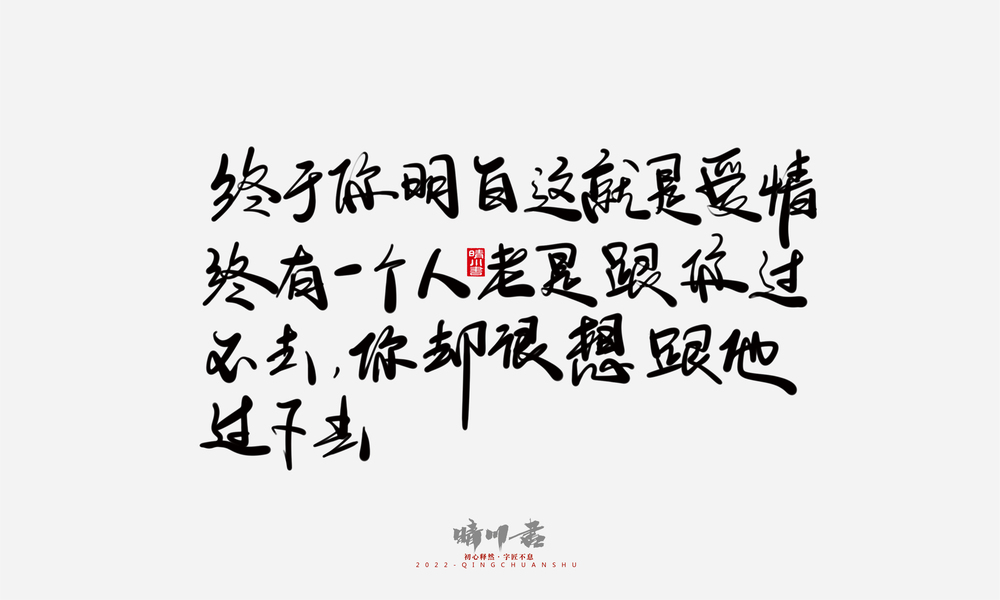 终于你明白这就是爱情
终有一个人老是跟你过
不去,你却很想跟他
过下去
晴川書
晴川書
初心释然·字匠不息
2022-QINGCHUANSHU